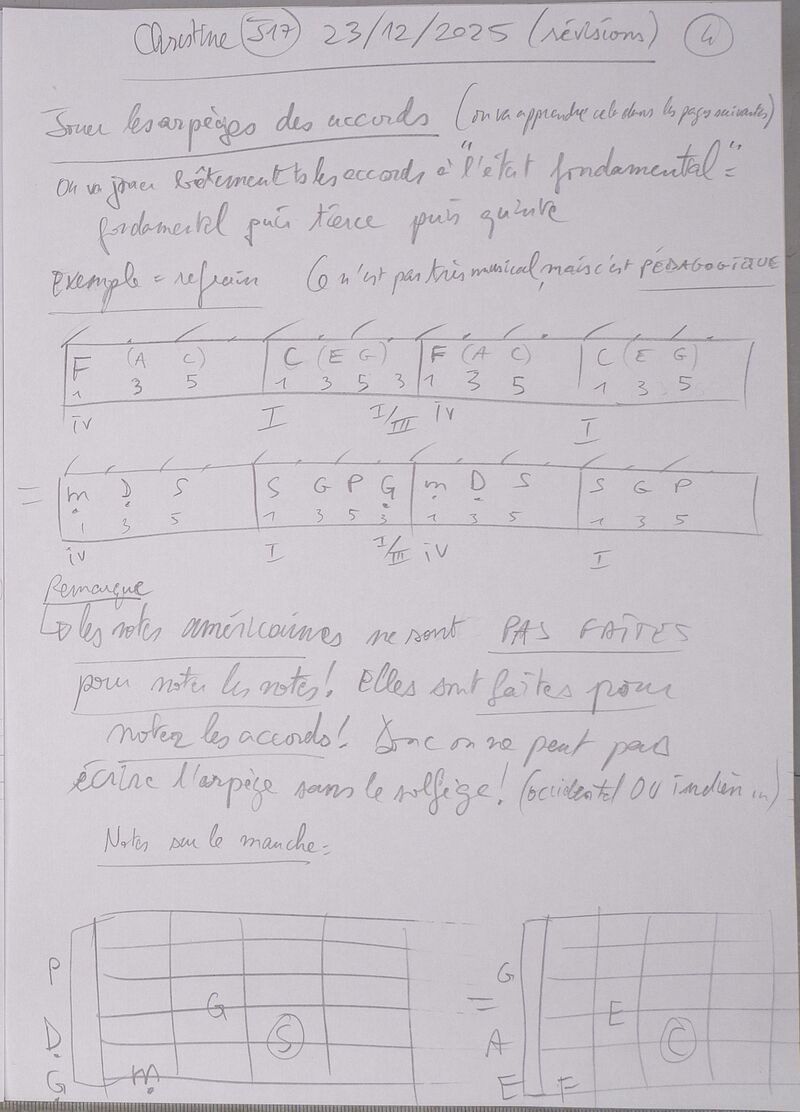 Christine J17 23/12/2025 (révisions) 4
Jouer les arpèges des accords (on va apprendre cela dans les pages suivantes)
On va jouer bêtement ts les accords à "l'état fondamental" =
fondamental puis tierce puis quinte
Exemple = refrain Ce n'est pas très musical, mais c'est PÉDAGOGIQUE
F (A C) C (E G) F (A C) C (E G)
1 3 5 1 3 5 3 1 3 5 1 3 5
iv I I/III iv I
= m D S S G P G m D S S G P
1 3 5 1 3 5 3 1 3 5 1 3 5
iv I I/III iv I
Remarque
↳ les notes américaines ne sont PAS FAÎTES
pour noter les notes! Elles sont faîtes pour
noter les accords! Donc on ne peut pas
écrire l'arpège sans le solfège! (occidental OU indien ...)
Notes sur le manche =
P G
G E
D S = A C
G m E F